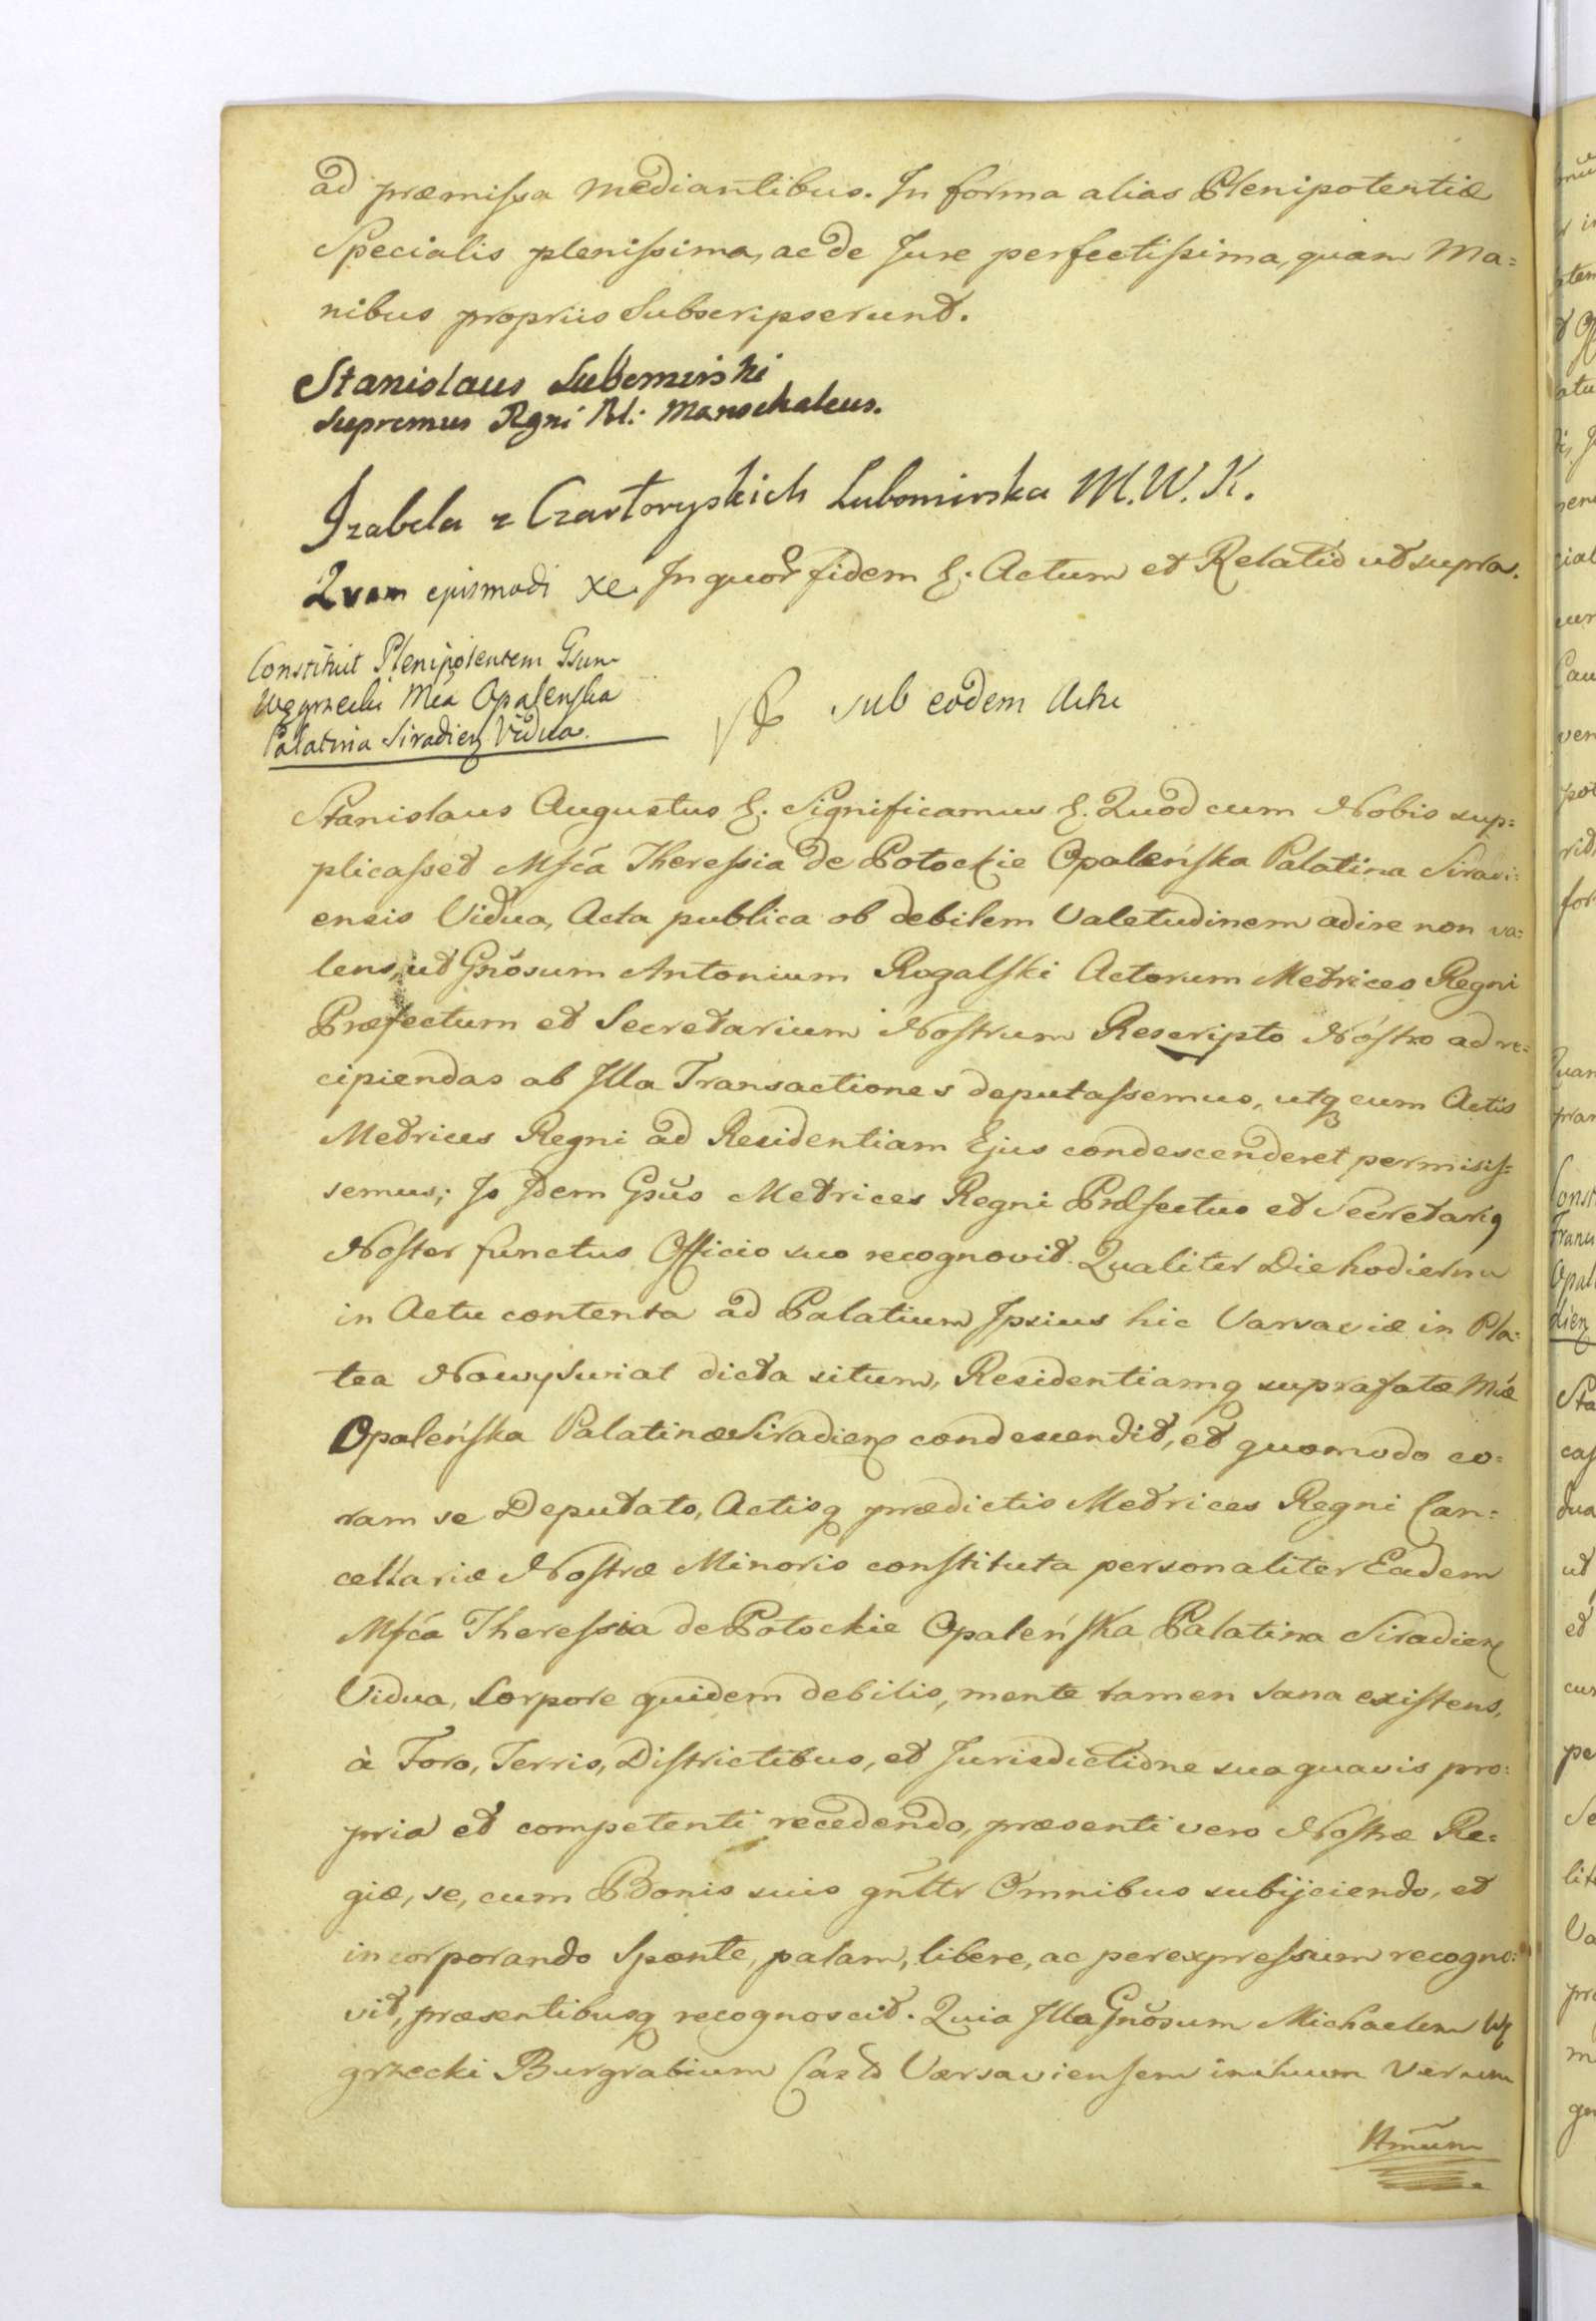 ad præmissa mediantibus. In forma alias Plenipotentiæ
Specialis plenissima, ac de Jure perfectissima, quam Ma=
nibus propriis subscripserunt.
Stanislaus Lubomirski
Supremus Rgni Pol: Marschalcus.
Izabela z Czartoryskich Lubomirska M.W.K.
Quam ejusmodi xc. In quor fidem &. Actum et Relatio ut supra.
Constituit Plenipotentem Gsum
Węgrzecki Mca Opaleńska
Palatina Siradien Vidua.
sub eodem Actu
Stanislaus Augustus &. Significamus &. Quod cum Nobis sup=
plicasset Mfca Theressia de Potockie Opaleńska Palatina Siradi=
ensis Vidua, Acta publica ob debilem Valetudinem adire non va=
lens, ut Gnosum Antonium Rogalski Actorum Metrices Regni
Præfectum et Secretarium Nostrum Rescripto Nostro ad re=
cipiendas ab Illa Transactiones deputassemus, utq cum Actis
Metrices Regni ad Residentiam Ejus condescenderet permisis=
semus; Is Idem Gsus Metrices Regni Præfectus et Secretariq
Noster functus Officio suo recognovit. Qualiter Die hodierna
in Actu contenta ad Palatium Ipsius hic Varsaviæ in Pla=
tea Nowy Swiat dicta situm, Residentiamq suprafatæ Mcæ
Opaleńska Palatinæ Siradien condescendit, et quomodo co=
ram se Deputato, Actisq prædictis Metrices Regni Can=
cellariæ Nostræ Minoris constituta personaliter Eadem
Mfca Theressia de Potockie Opaleńska Palatina Siradien
Vidua, Corpore quidem debilis, mente tamen sana existens,
à Foro, Terris, Districtibus, et Jurisdictione sua quavis pro=
pria et competenti recedendo, præsenti vero Nostræ Re=
giæ, se, cum Bonis suis gnltr Omnibus subijciendo, et
incorporando Sponte, palam, libere, ac per expressum recogno=
vit, præsentibusq recognoscit. Quia Illa Gnosum Michaelem Wę
grzecki Burgrabium Varsaviensem verum